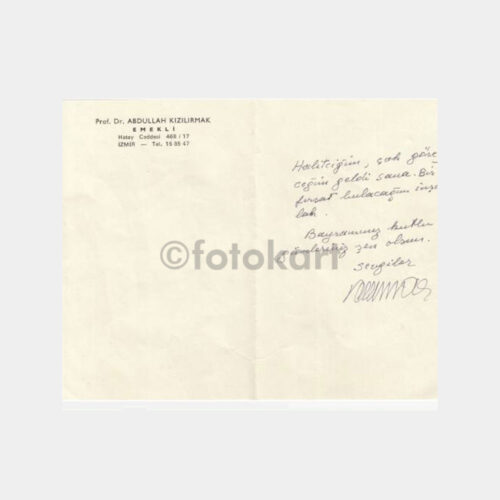 Prof. Dr. ABDULLAH KIZILIRMAK
EMEKLİ
Hatay Caddesi 468/17
İZMİR — Tel. 15 35 47
Halitciğim, çok göre
ceğim geldi sana. Bir
fırsat bulacağım inşa
lah.
Bayramınız kutlu
günleriniz şen olsun.
Sevgiler
©fotokart